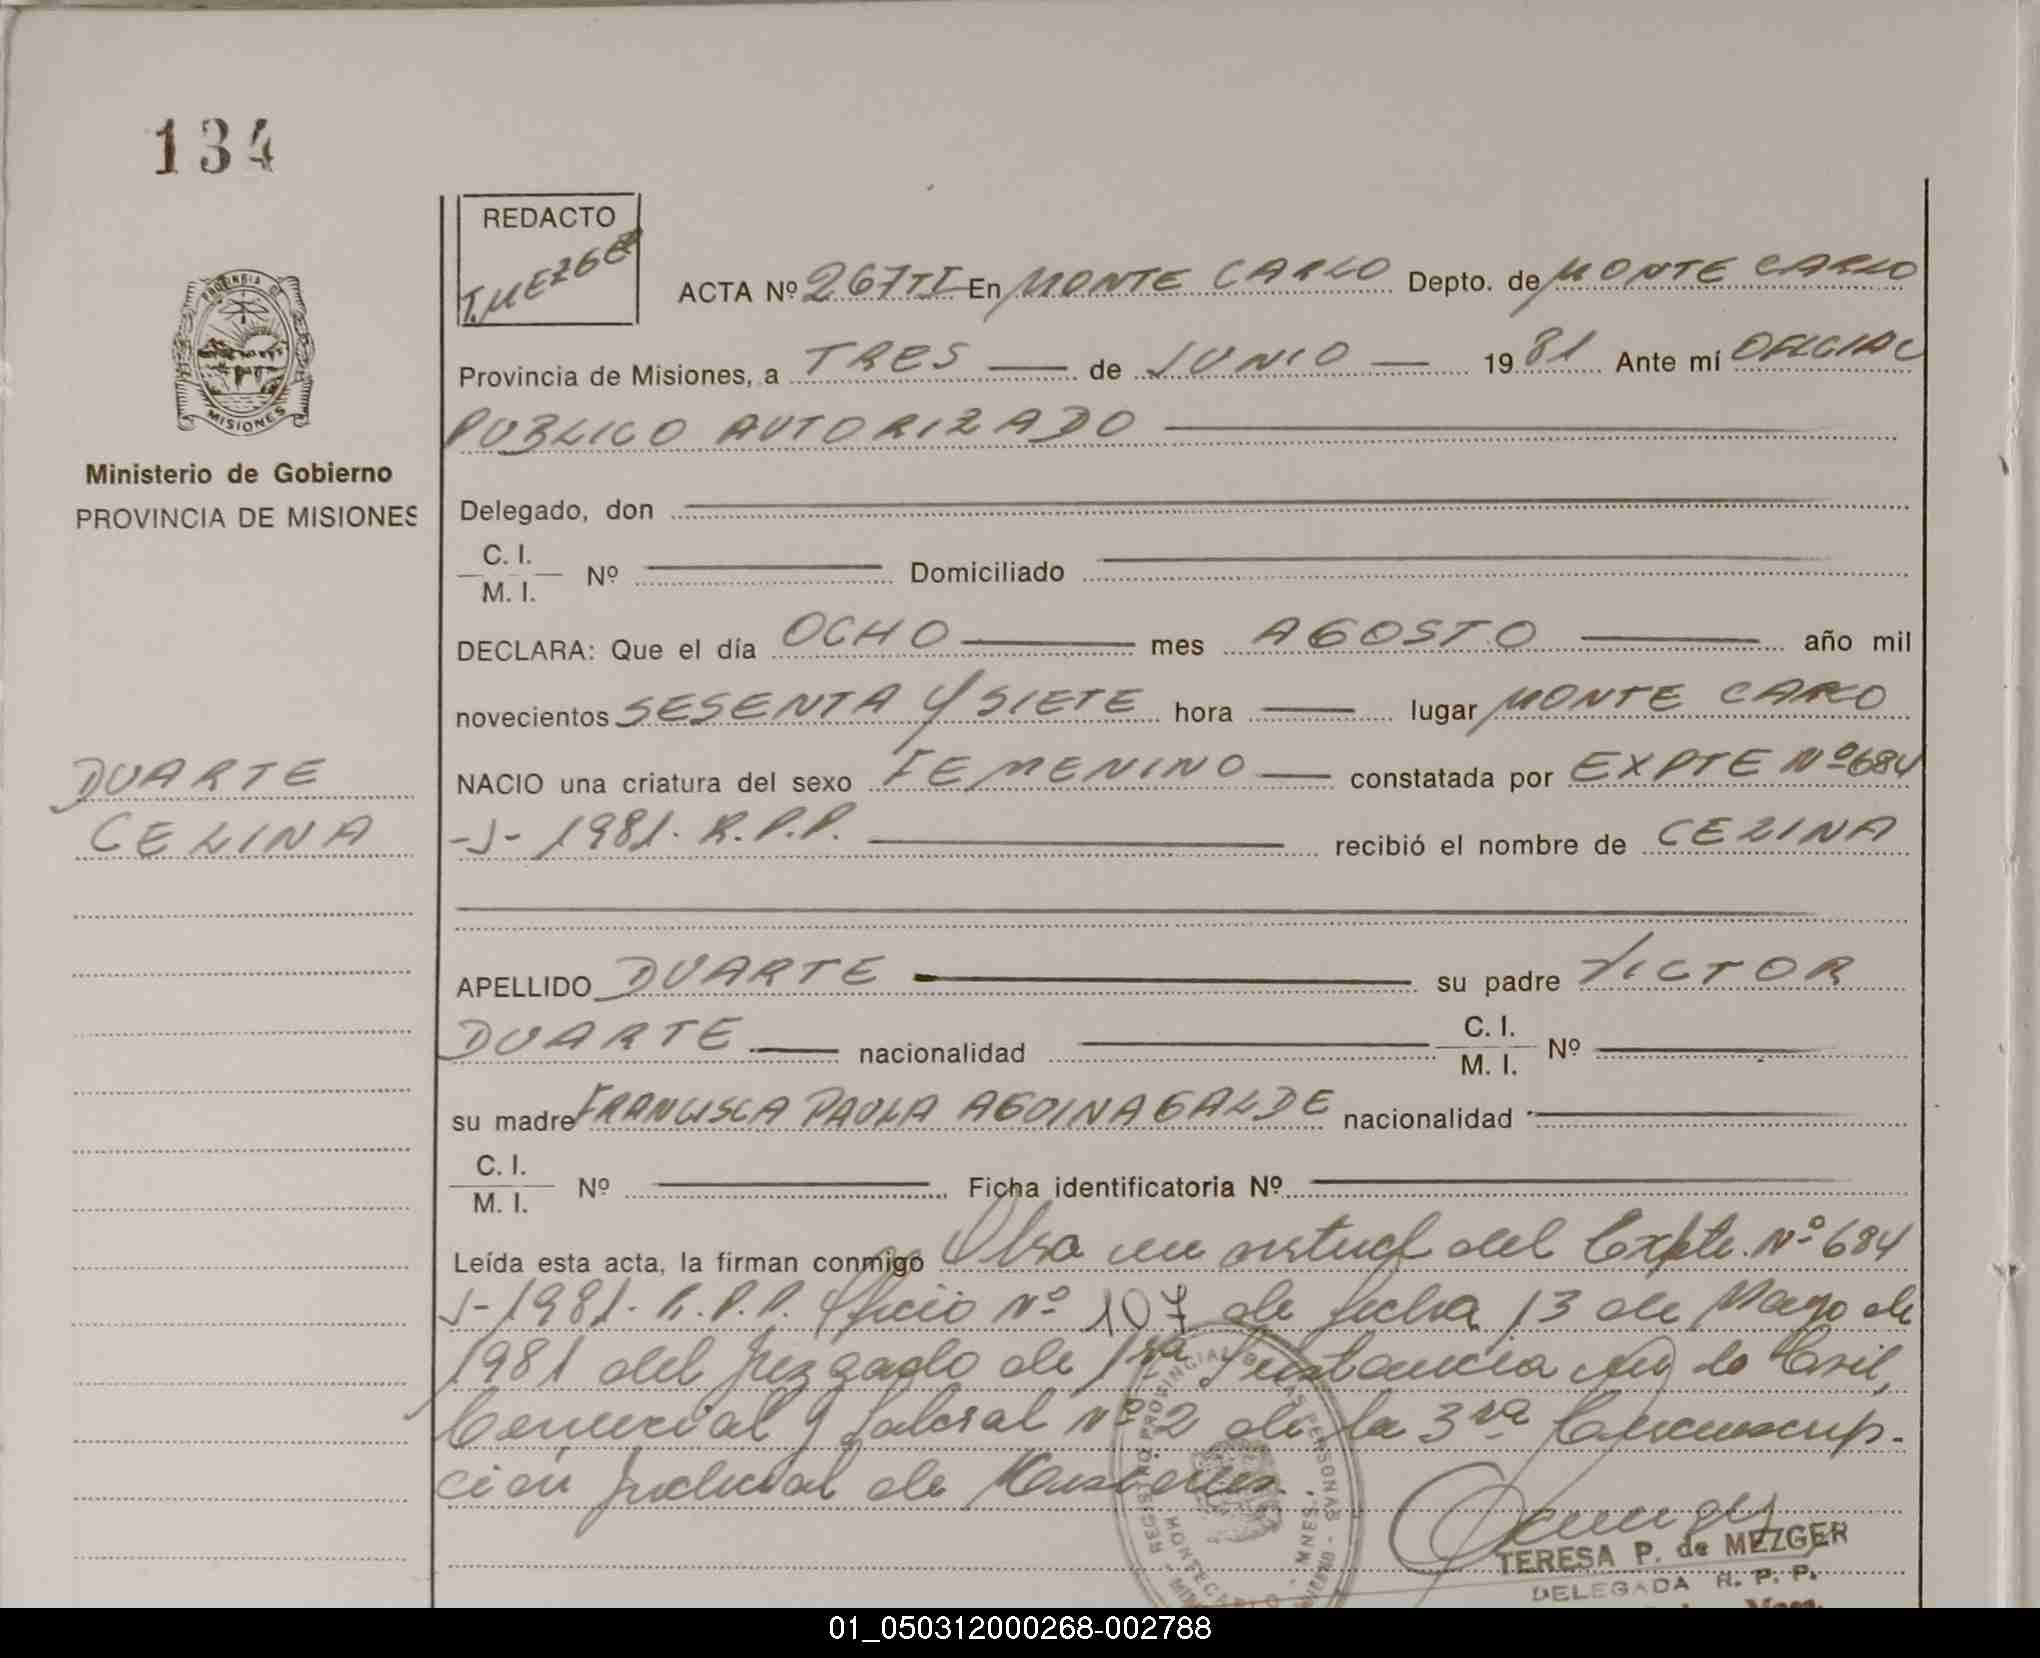 134
REDACTO
T. MEZGER
ACTA Nº 267 TI En MONTE CARLO Depto. de MONTE CARLO
PROVINCIA DE
MISIONES
Provincia de Misiones, a TRES de JUNIO 1981 Ante mí OFICIAL
PUBLICO AUTORIZADO
Ministerio de Gobierno
PROVINCIA DE MISIONES
Delegado, don
C. I.
M. I. Nº Domiciliado
DECLARA: Que el día OCHO mes AGOSTO año mil
novecientos SESENTA Y SIETE hora lugar MONTE CARLO
DUARTE
CELINA
NACIO una criatura del sexo FEMENINO constatada por EXPTE Nº 684
-J- 1981. R.P.P. recibió el nombre de CELINA
APELLIDO DUARTE su padre VICTOR
DUARTE nacionalidad C. I. M. I. Nº
su madre FRANCISCA PAULA AGOINAGALDE nacionalidad
C. I.
M. I. Nº Ficha identificatoria Nº
Leída esta acta, la firman conmigo Obra en del Expte. Nº 684
J-1981. R.P.P. Oficio Nº 107 de fecha 13 de Mayo de
1981 del Juzgado de 1ra Instancia en lo Civil,
Comercial y Laboral Nº 2 de la 3ra Circunscrip-
ción Judicial de Misiones.
REGISTRO PROVINCIAL DE LAS PERSONAS
MONTECARLO - MNES.
TERESA P. de MEZGER
DELEGADA R. P. P.
01_050312000268-002788